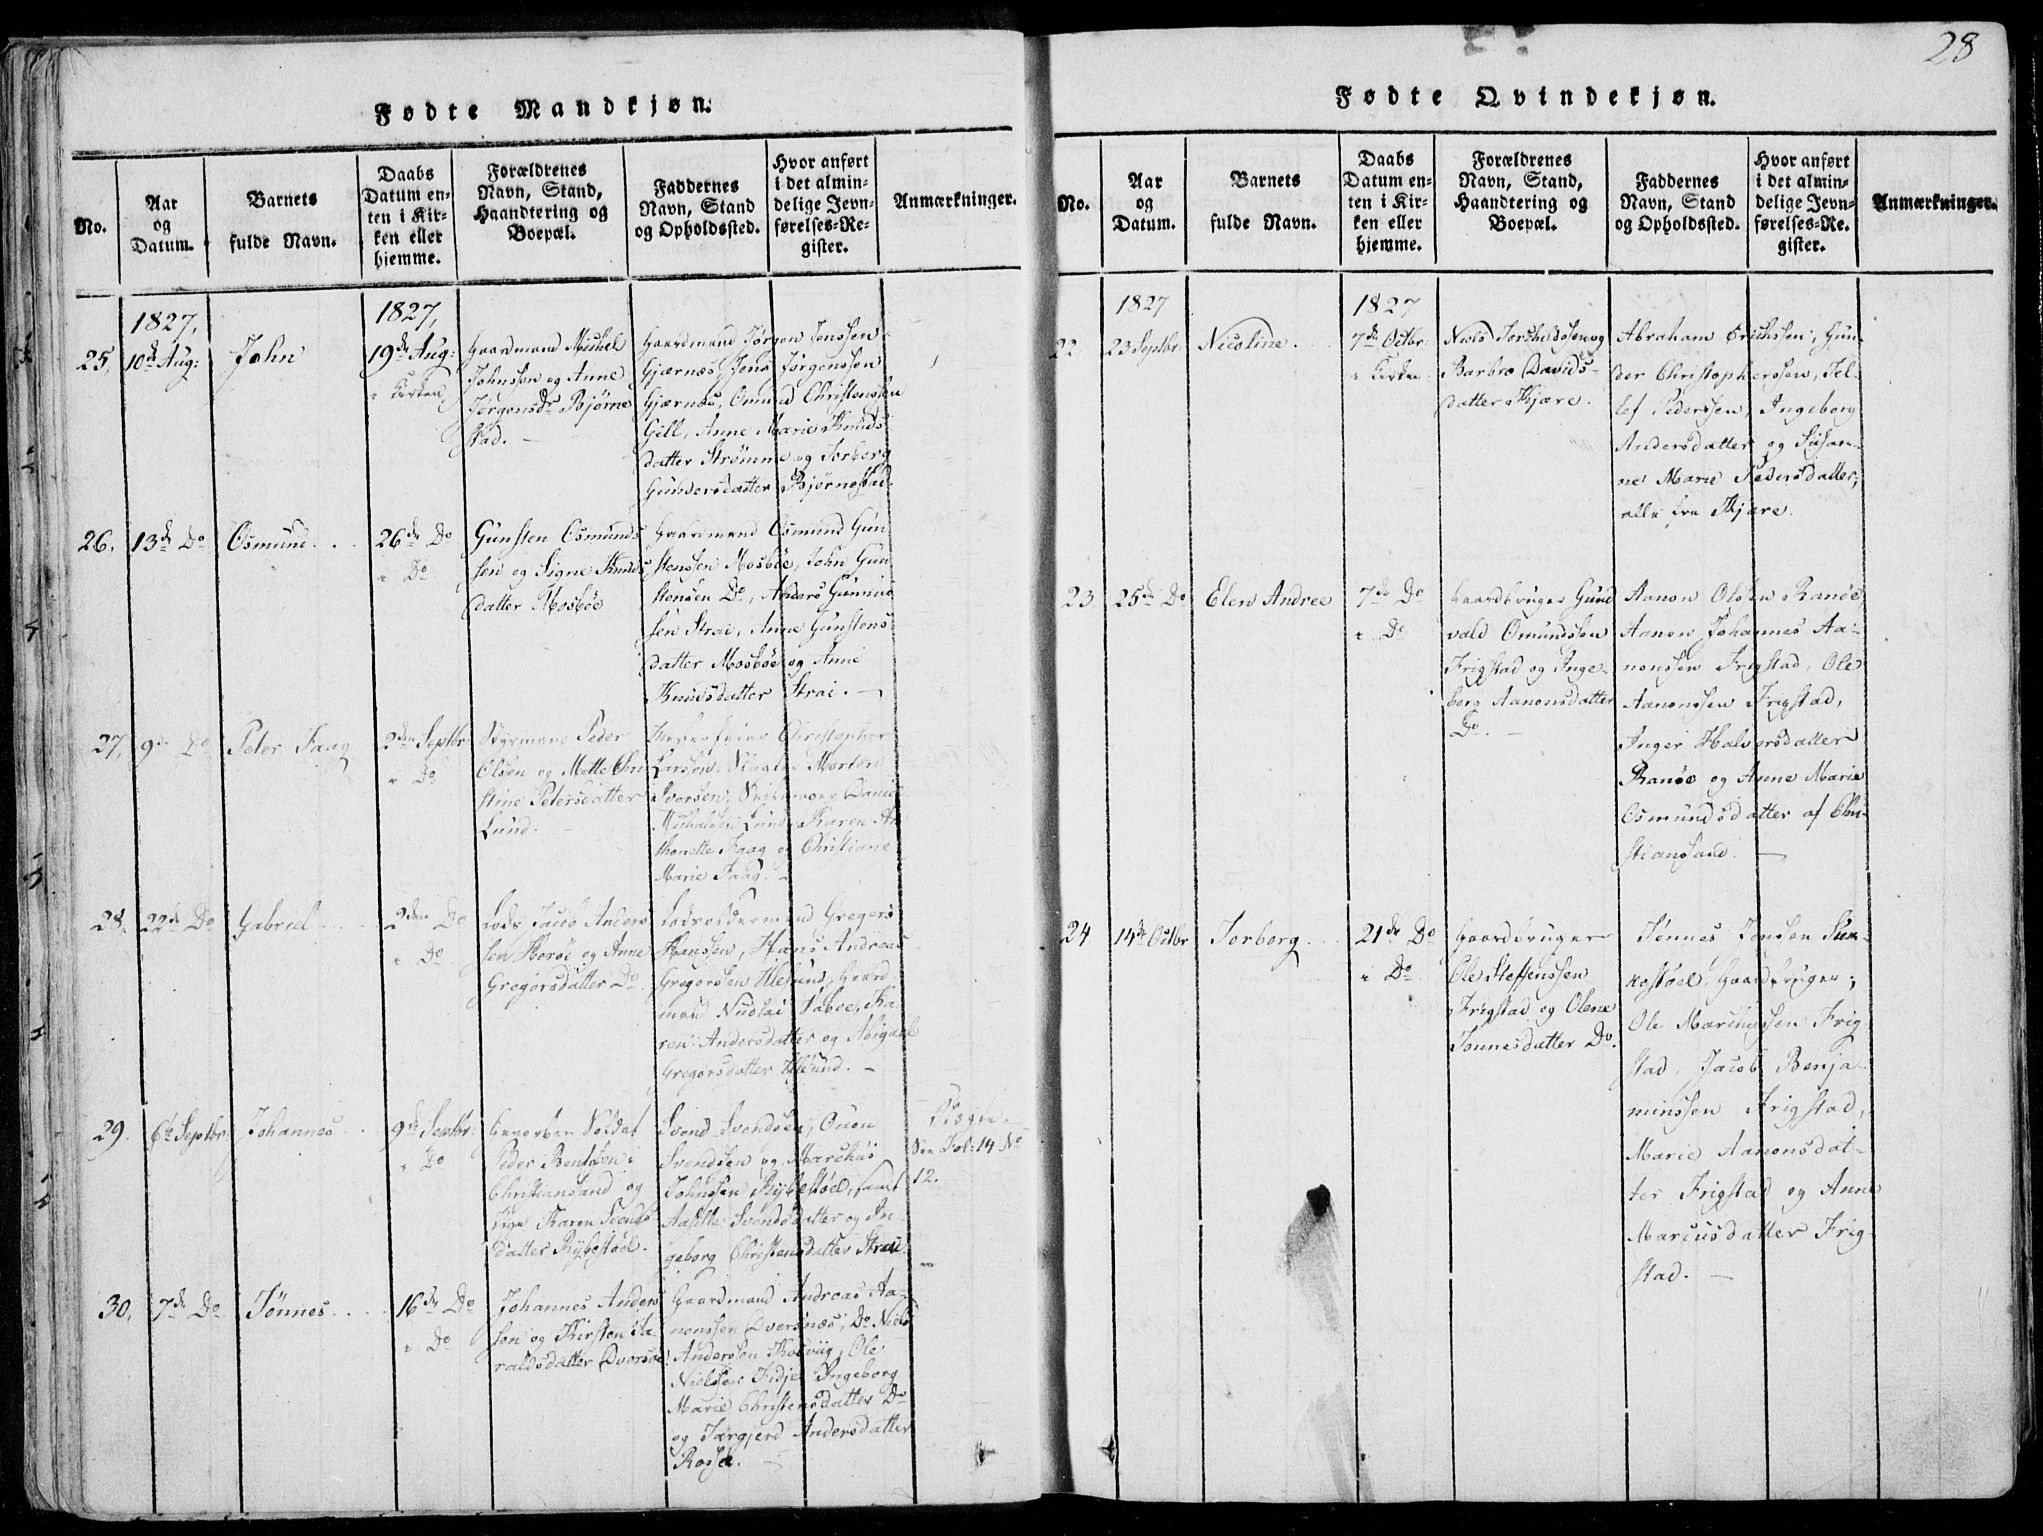 28
Fødte Mandkjøn.
No.
Aar
og
Datum.
Barnets
fulde Navn.
Daabs
Datum en-
ten i Kir-
ken eller
hjemme.
Forældrenes
Navn, Stand,
Haandtering og
Boepæl.
Faddernes
Navn, Stand
og Opholdssted.
Hvor anført
i det almin-
delige Jevn-
førelses-Re-
gister.
Anmærkninger.
1827,
25. 10de Aug:
John
1827,
19de Aug:
i Kirken
Gaardmand Michel
Johnssøn og Anne
Jørgensdr Bjørne
stad.
Gaardmand Jørgen Jenssen
Gjærnæs, Jens Jørgenssen
Gjærnæs, Omund Christenssen
Gill, Anne Marie Knuds
datter Strømme og Torborg
Gundersdatter Bjørnestad.
26. 13de Do
Osmund
26de Do
i Do
Gunsten Osmunds
sen og Signe Knuds
datter Mosbøe
Gaardmand Osmund Gun
stenssen Mosbøe, John Gun
stensen Do, Anders
sen Strai, Anne Gunstens
datter Mosbøe og Anne
Knudsdatter Strai.
27. 9de Do
Peter Faag
2den Septbr
i Do
Styrmand Peder
Olsen og Mette Chri
stine Petersdatter
Lund.
Christopher
Larssen, Morten
Iversen, Daniel
Lund, Karen An
thonette Faag og Christiane
Marie Faag.
28. 22de Do
Gabriel
2den Do
i Do
Lods Jacob Anders
sen Herøe og Anne
Gregersdatter Do
Lodsoldermand Gregers
Hanssen, Hans Andreas
Gregersen Ulesund, Gaard
mand Nicolai Taboe, Ka
ren Andersdatter og Abigael
Gregersdatter Ulesund.
29. 6te Septbr:
Johannes
9de Septbr:
i Do
Hvervben Soldat
Peder Bentsen i
Christiansand og
Karen Svends
datter Rybestøel.
Svend Svendsen, Ouen
Svendsen og Marchus
Johnssen Rybestøel, samt
Aasille Svendsdatter og In
geborg Christensdatter Strai
Uægte.
See Fol: 14 No
12.
30. 7de Do
Tønnes
16de Do
i Do
Johannes Anders
sen og Kirsten Ta
raldsdatter Dversnæs
Gaardmand Andreas Aa-
nonssen Dversnæs, Do Niels
Anderssen Kodviig, Ole
Nielssen Fidje, Ingeborg
Marie Christensdatter Do
og Targjerd Andersdatter
Rosse.
Fødte Qvindekjøn.
No.
Aar
og
Datum.
Barnets
fulde Navn.
Daabs
Datum en-
ten i Kir-
ken eller
hjemme.
Forældrenes
Navn, Stand,
Haandtering og
Boepæl.
Faddernes
Navn, Stand
og Opholdssted.
Hvor anført
i det almin-
delige Jevn-
førelses-Re-
gister.
Anmærkninger.
1827
22 23 Septbr:
Nicoline
1827
7de Octbr:
i Kirken
Niels Terchelssen og
Barbro Davids-
datter Kjære.
Abraham Erichssen, Gun-
der Christopherssen, Tel-
lef Pederssen, Ingeborg
Andersdatter og Susan-
ne Marie Pedersdatter,
alle fra Kjære.
23 25de Do
Elen Andree
7de Do
i Do
Gaardbruger Gund
vald Omundssen
Frigstad og Inge-
borg Aanonsdatter
Do.
Aanon Olssen Ranøe
Aanon Johannes Aa-
nonssen Frigstad, Ole
Aanonssen Frigstad,
Inger Halvorsdatter
Ranøe og Anne Marie
Osmundsdatter af Chri-
stianssand.
24 14de Octbr
Torborg
21de Do
i Do
Gaardbruger
Ole Steffenssen
Frigstad og Olene
Tønnesdatter Do.
Tønnes Jensen
Gaardbruger;
Ole Marcussen Frig
stad, Jacob Benja-
minssen Frigstad,
Marie Aanonsdat-
ter Frigstad og Anne
Marcusdatter Frig
stad.